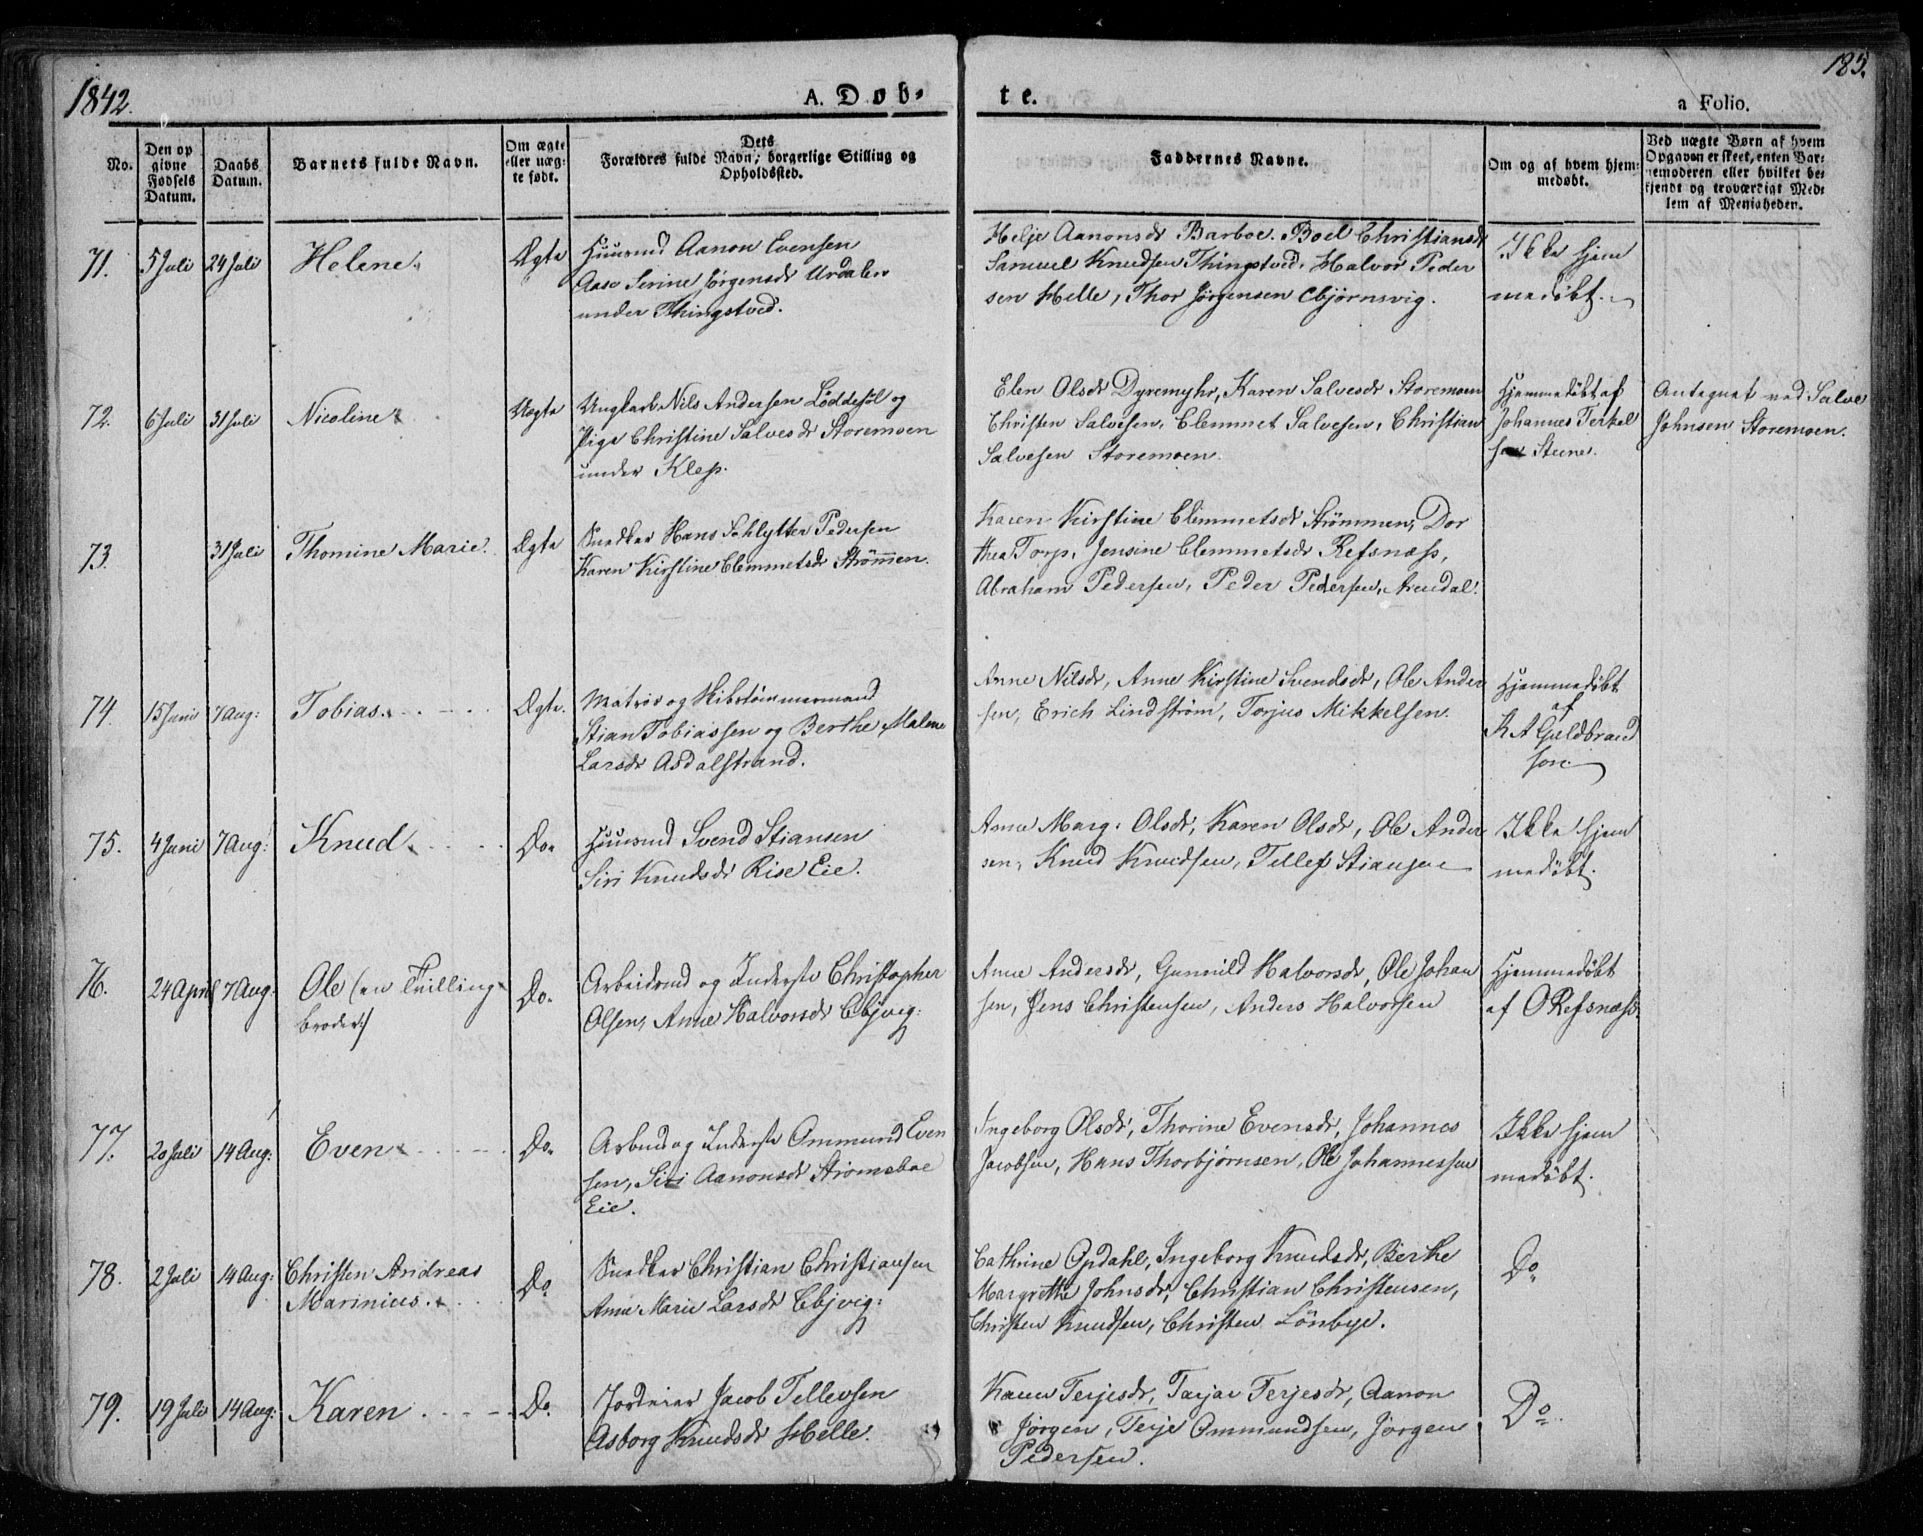 1842.
A. Døb-
te.
a Folio.
185.
No.
Den op
givne
Fødsels
Datum.
Daabs
Datum.
Barnets fulde Navn.
Om ægte
eller uæg-
te født.
Dets
Forældres fulde Navn, borgerlige Stilling og
Opholdssted.
Faddernes Navne.
Om og af hvem hjem-
medøbt.
Ved uægte Børn af hvem
Opgaven er skeet, enten Bar-
nemoderen eller hvilket be-
kjendt og troværdigt Med-
lem af Menigheden.
71. 5 Juli 24 Juli Helene. Ægte
Huusmd Aanon Evensen
Aase Serine Jørgensdr Urdalen
under Thingstved.
Helje Aanonsdr Barboe. Boel Christiansdr
Samuel Knudsen Thingstved. Halvor Peder
sen Helle, Thor Jørgensen Ebjørnsvig.
Ikke hjem
medøbt.
72. 6 Juli 31 Juli Nicoline Uægte
Ungkarl Nils Andersen Löddesöl og
Pige Christine Salvesdr Storemoen
under Klep.
Elen Olsdr Dyremyhr, Karen Salvesdr Storemoen
Christen Salvesen, Clemmet Salvesen, Christian
Salvesen Storemoen.
Hjemmedøbt af
Johannes Terkel
sen Steene.
Antegnet ved Salve
Johnsen Storemoen.
73. 31 Juli Thomine Marie. Ægte
Snedker Hans Schlytter Pedersen
Karen Kirstine Clemmetsdr Strömmen.
Karen Kirstine Clemmetsdr Strömmen, Dor
thea Torp, Jensine Clemmetsdr Refsnæss,
Abraham Pedersen, Peder Pedersen, Arendal.
74. 15 Juni 7 Aug: Tobias. Ægte.
Matros og Skibstömmermand
Stian Tobiassen og Berthe Malene
Larsdr Asdalstrand.
Anne Nilsdr, Anne Kirstine Svendsdr, Ole Ander
sen, Erich Lindström, Torjus Mikkelsen.
Hjemmedøbt
af
K A Guldbrand
sen
75. 4 Juni 7 Aug: Knud. Do.
Huusmd Svend Stiansen
Siri Knudsdr Rise Eie.
Anne Marg: Olsdr, Karen Olsdr, Ole Ander
sen, Knud Knudsen, Tellef Stiansen
Ikke hjem
medøbt.
76. 24 April 7 Aug: Ole (en Tvilling
broder:/ Do.
Arbeidsmd og Inderste Christopher
Olsen, Anne Halvorsdr Ebjvig:
Anne Andersdr, Gunnild Halvorsdr, Ole Johan
sen, Jens Christensen, Anders Halvorsen
Hjemmedøbt
af O Refsnæss.
77. 20 Juli 14 Aug: Even Do.
Arbmd og Inderste Ommund Even
sen, Siri Aanonsdr Strömsboe
Eie.
Ingeborg Olsdr, Thorine Evensdr, Johannes
Jacobsen, Hans Thorbjörnsen, Ole Johannessen
Ikke hjem
medøbt.
78. 2 Juli 14 Aug: Christen Andreas
Marinius. Do
Snedker Christian Christiansen
Anne Marie Larsdr Ebjvig:
Cathrine Opdahl, Ingeborg Knudsdr, Berthe
Margrethe Johnsdr, Christian Christensen,
Christen Knudsen, Christen Lönbye.
Do
79. 19 Juli 14 Aug: Karen Do.
Jordeier Jacob Tellevsen
Asborg Knudsdr Helle.
Karen Terjesdr, Tarjer Terjesdr, Aanon
Jørgen, Terje Ommundsen, Jørgen
Pedersen.
Do